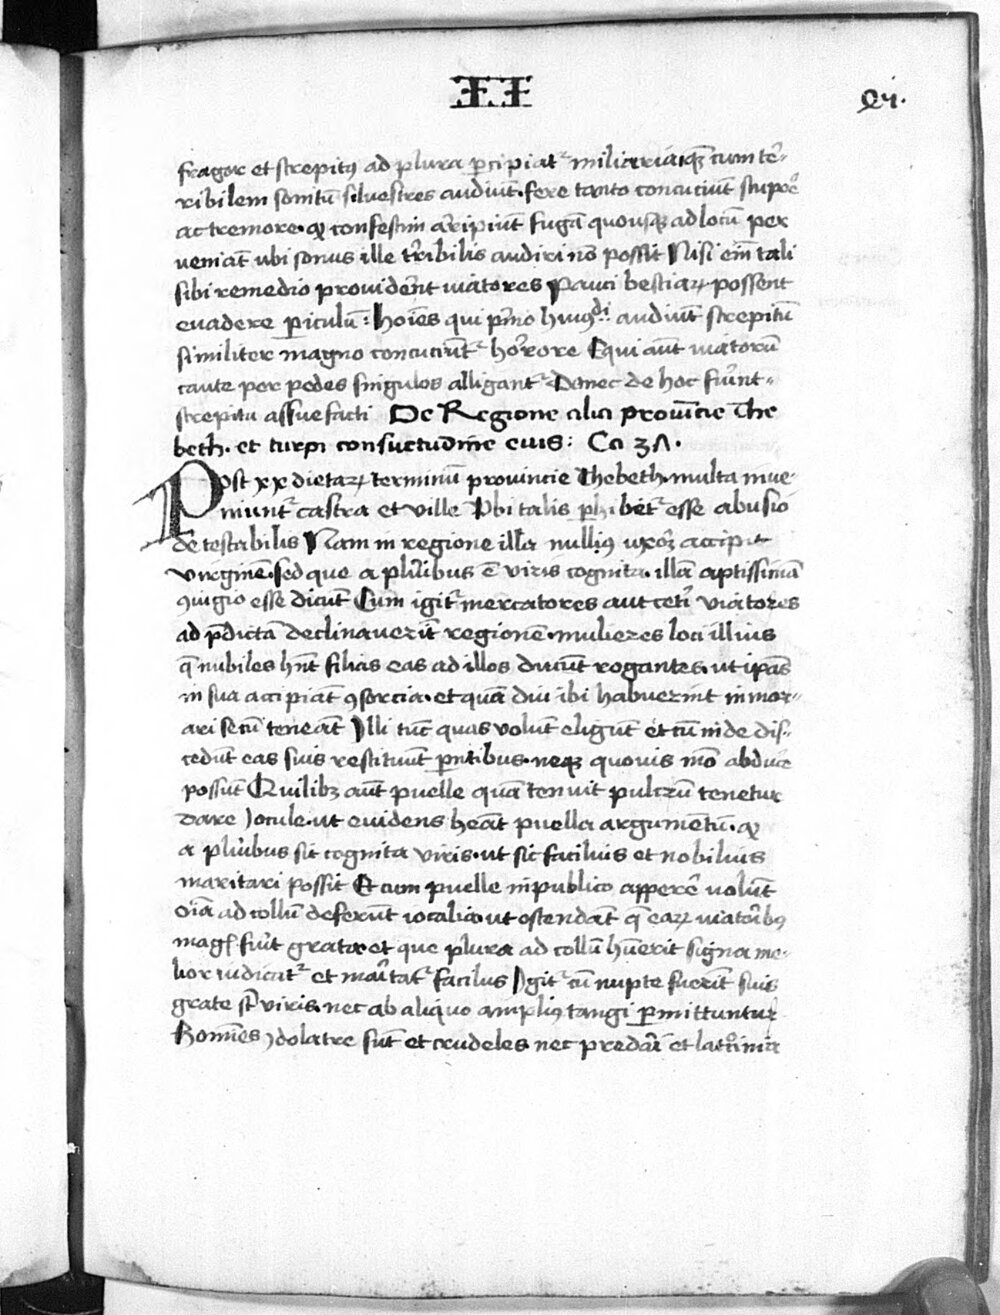 II
fragor et strepitꝯ ad plura p̱cipiat᷑ miliaria qꝫ cum te᷑-
ribilem sonitū siluestres audiūt fere tanto concuciūt᷑ stupo᷑e
ac tremore ꝙ confestim ar̃ipiūt fugā quousqꝫ ad locū per
ueniāt ubi sonus ille tr̃ibilis audiri nō possit Nisi em̄ tali
sibi remedio prouider̄ent uiatores Pauci bestiaꝝ possent
euadere p̱iculū: hoīes qui pīmo huiꝯdi: audiūt strepitū
similiter magno concuciūt᷑ hor̃ore Equi aūt uiatorū
caute per pedes singulos alligant᷑ Donec de hoc fiūnt-
strepitu assuefacti De Regione alia prouīcie The
beth. et turpi consuetudīne eius: Ca 37.
Post xx dietaꝝ terminū prouincie Thebeth. multa inue-
niunt᷑ castra et uille Vbi talis ꝑhibēt᷑ esse abusio
detestabilis Nam in regione illa nullꝯ uxoꝫ accipit
virginē. sed que a plūibus ē viris cognita. illā aptissimā
ꝯiugio esse dicūt Cum igit᷑ mercatores aut ceti᷑ viatores
ad p̄dictā declinauerīt regionē. mulieres loci illius
q̄ nubiles hn̄t filias eas ad illos ducūt rogantes. ut ipās
in sua accipiāt ꝯsorcia. et quā diu ibi habuerint inmor-
ari secū teneāt Illi tūc quas volūt eligūt et cū inde dis-
cedūt eas suis restituūt pn̄tibus. neqꝫ quouis mō abduce᷑
possūt Quilibꝫ aūt puelle quā tenuit pulcrū tenetur
dare Iocule. ut euidens heāt puella argumētū. ꝙ
a plūibus sit cognita viris. ut sic facilius et nobilius
maritari possit Et cum puelle in publico appere᷑ uolūt
oīa ad collū deferunt iocalia. ut ostendāt q̄ eaꝝ uiatoribꝯ
mag̃ fiūt grata. et que plura ad collū hūerit signa me-
lior iudicat᷑ et maritat᷑ facilius Igit᷑ cū nupte fuerīt suis
grate st̄ viris. nec ab aliquo ampliꝯ tangi p̱mittuntur
Homīes ydolatre sūt et crudeles nec predari et lat᷑cinia